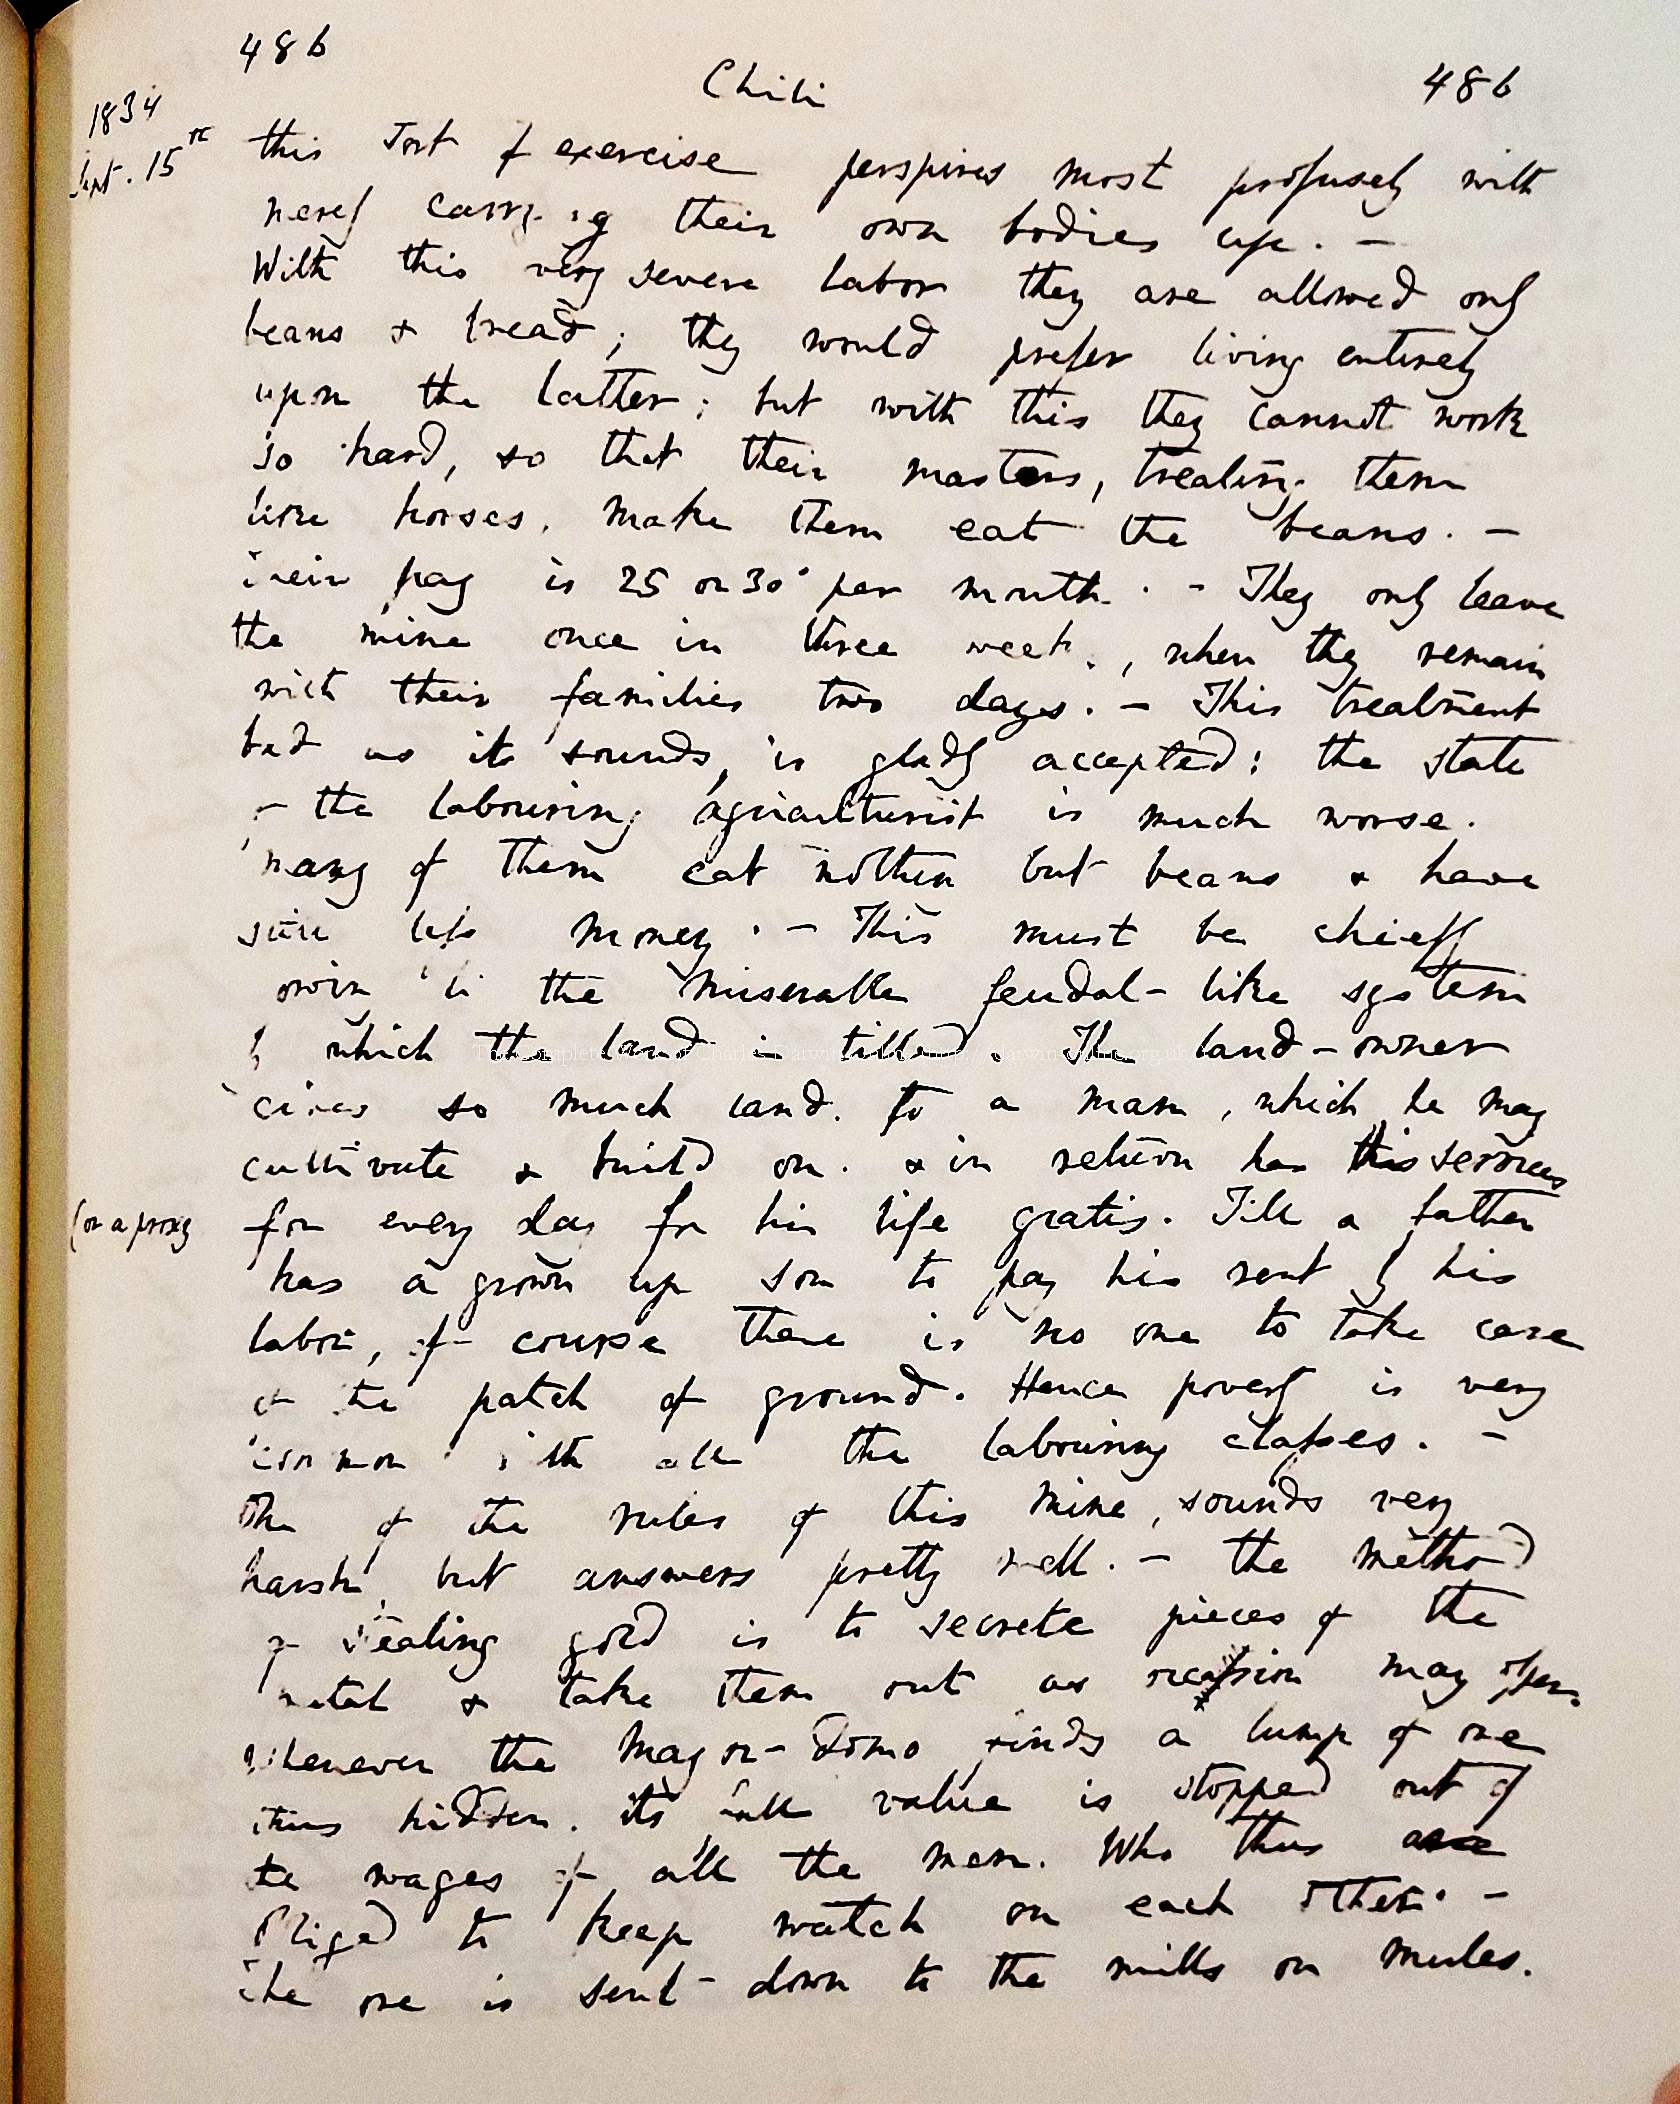 486
Chili
486
1834
Sept. 15th
this sort of exercise perspires most profusely with
merely carrying their own bodies up. —
With this very severe labor they are allowed only
beans & bread; they would prefer living entirely
upon the latter; but with this they cannot work
so hard, so that their masters, treating them
like horses, make them eat the beans. —
Their pay is 25 or 30s per month. - They only leave
the mine once in three weeks, when they remain
with their families two days. — This treatment
bad as it sounds, is gladly accepted; the state
of the labouring agriculturist is much worse.
many of them eat nothin but beans & have
still less money. — This must be chiefly
owin to the miserable feudal-like system
by which the land is tilled. The land-owner
gives so much land. to a man, which he may
cultivate & build on. & in return has his services
(or a proxy
for every day for his life gratis. Till a father
has a grown up son to pay his rent by his
labor, of course there is no one to take care
of the patch of ground. Hence poverty is very
common with all the labouring classes. —
One of the rules of this mine, sounds very
harsh, but answers pretty well. — the method
of stealing gold is to secrete pieces of the
metal & take them out as occasion may offer.
Whenever the Mayor-domo finds a lump of ore
thus hidden. its full value is stopped out of
the wages of all the men. Who thus are
obliged to keep watch on each other. —
The ore is sent down to the mills on mules.